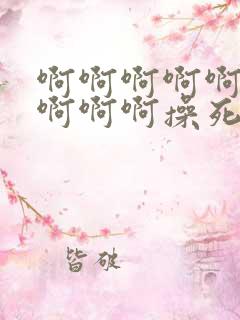 啊啊啊啊啊
啊啊啊操死
皆破